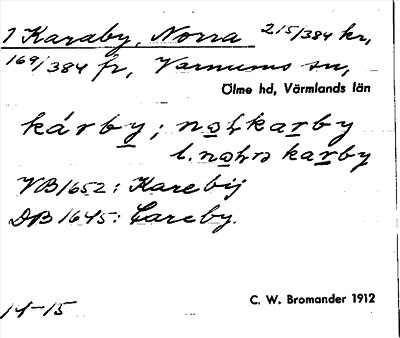 1 Karaby, Norra 215/384 kr,
169/384 fr, Varnums sn,
Ölme hd, Värmlands län
kárby; noḷkarby
l. nohrs karby
VB 1652: Karebij
DB 1645: Careby.
14-15
C. W. Bromander 1912